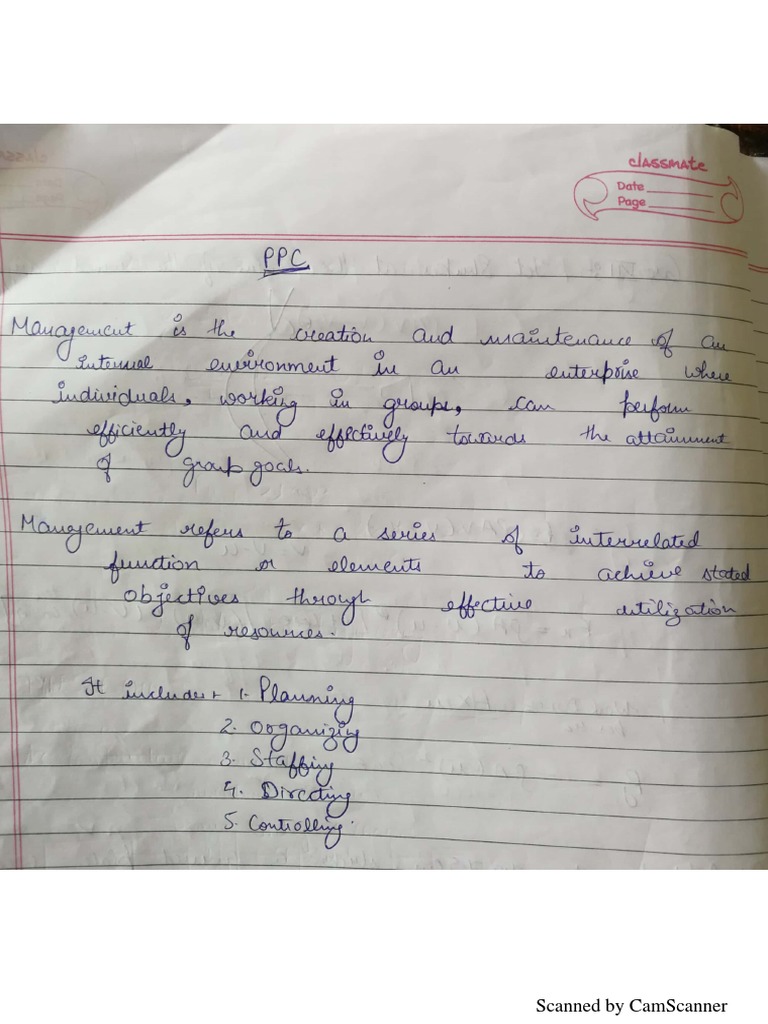 classmate
Date
Page
PPC
Management is the creation and maintenance of an
internal environment in an enterprise where
individuals, working in groups, can perform
efficiently and effectively towards the attainment
of group goals.
Management refers to a series of interrelated
function or elements to achieve stated
objectives through effective utilization
of resources.
It includes 1. Planning
2. Organizing
3. Staffing
4. Directing
5. Controlling.
Scanned by CamScanner